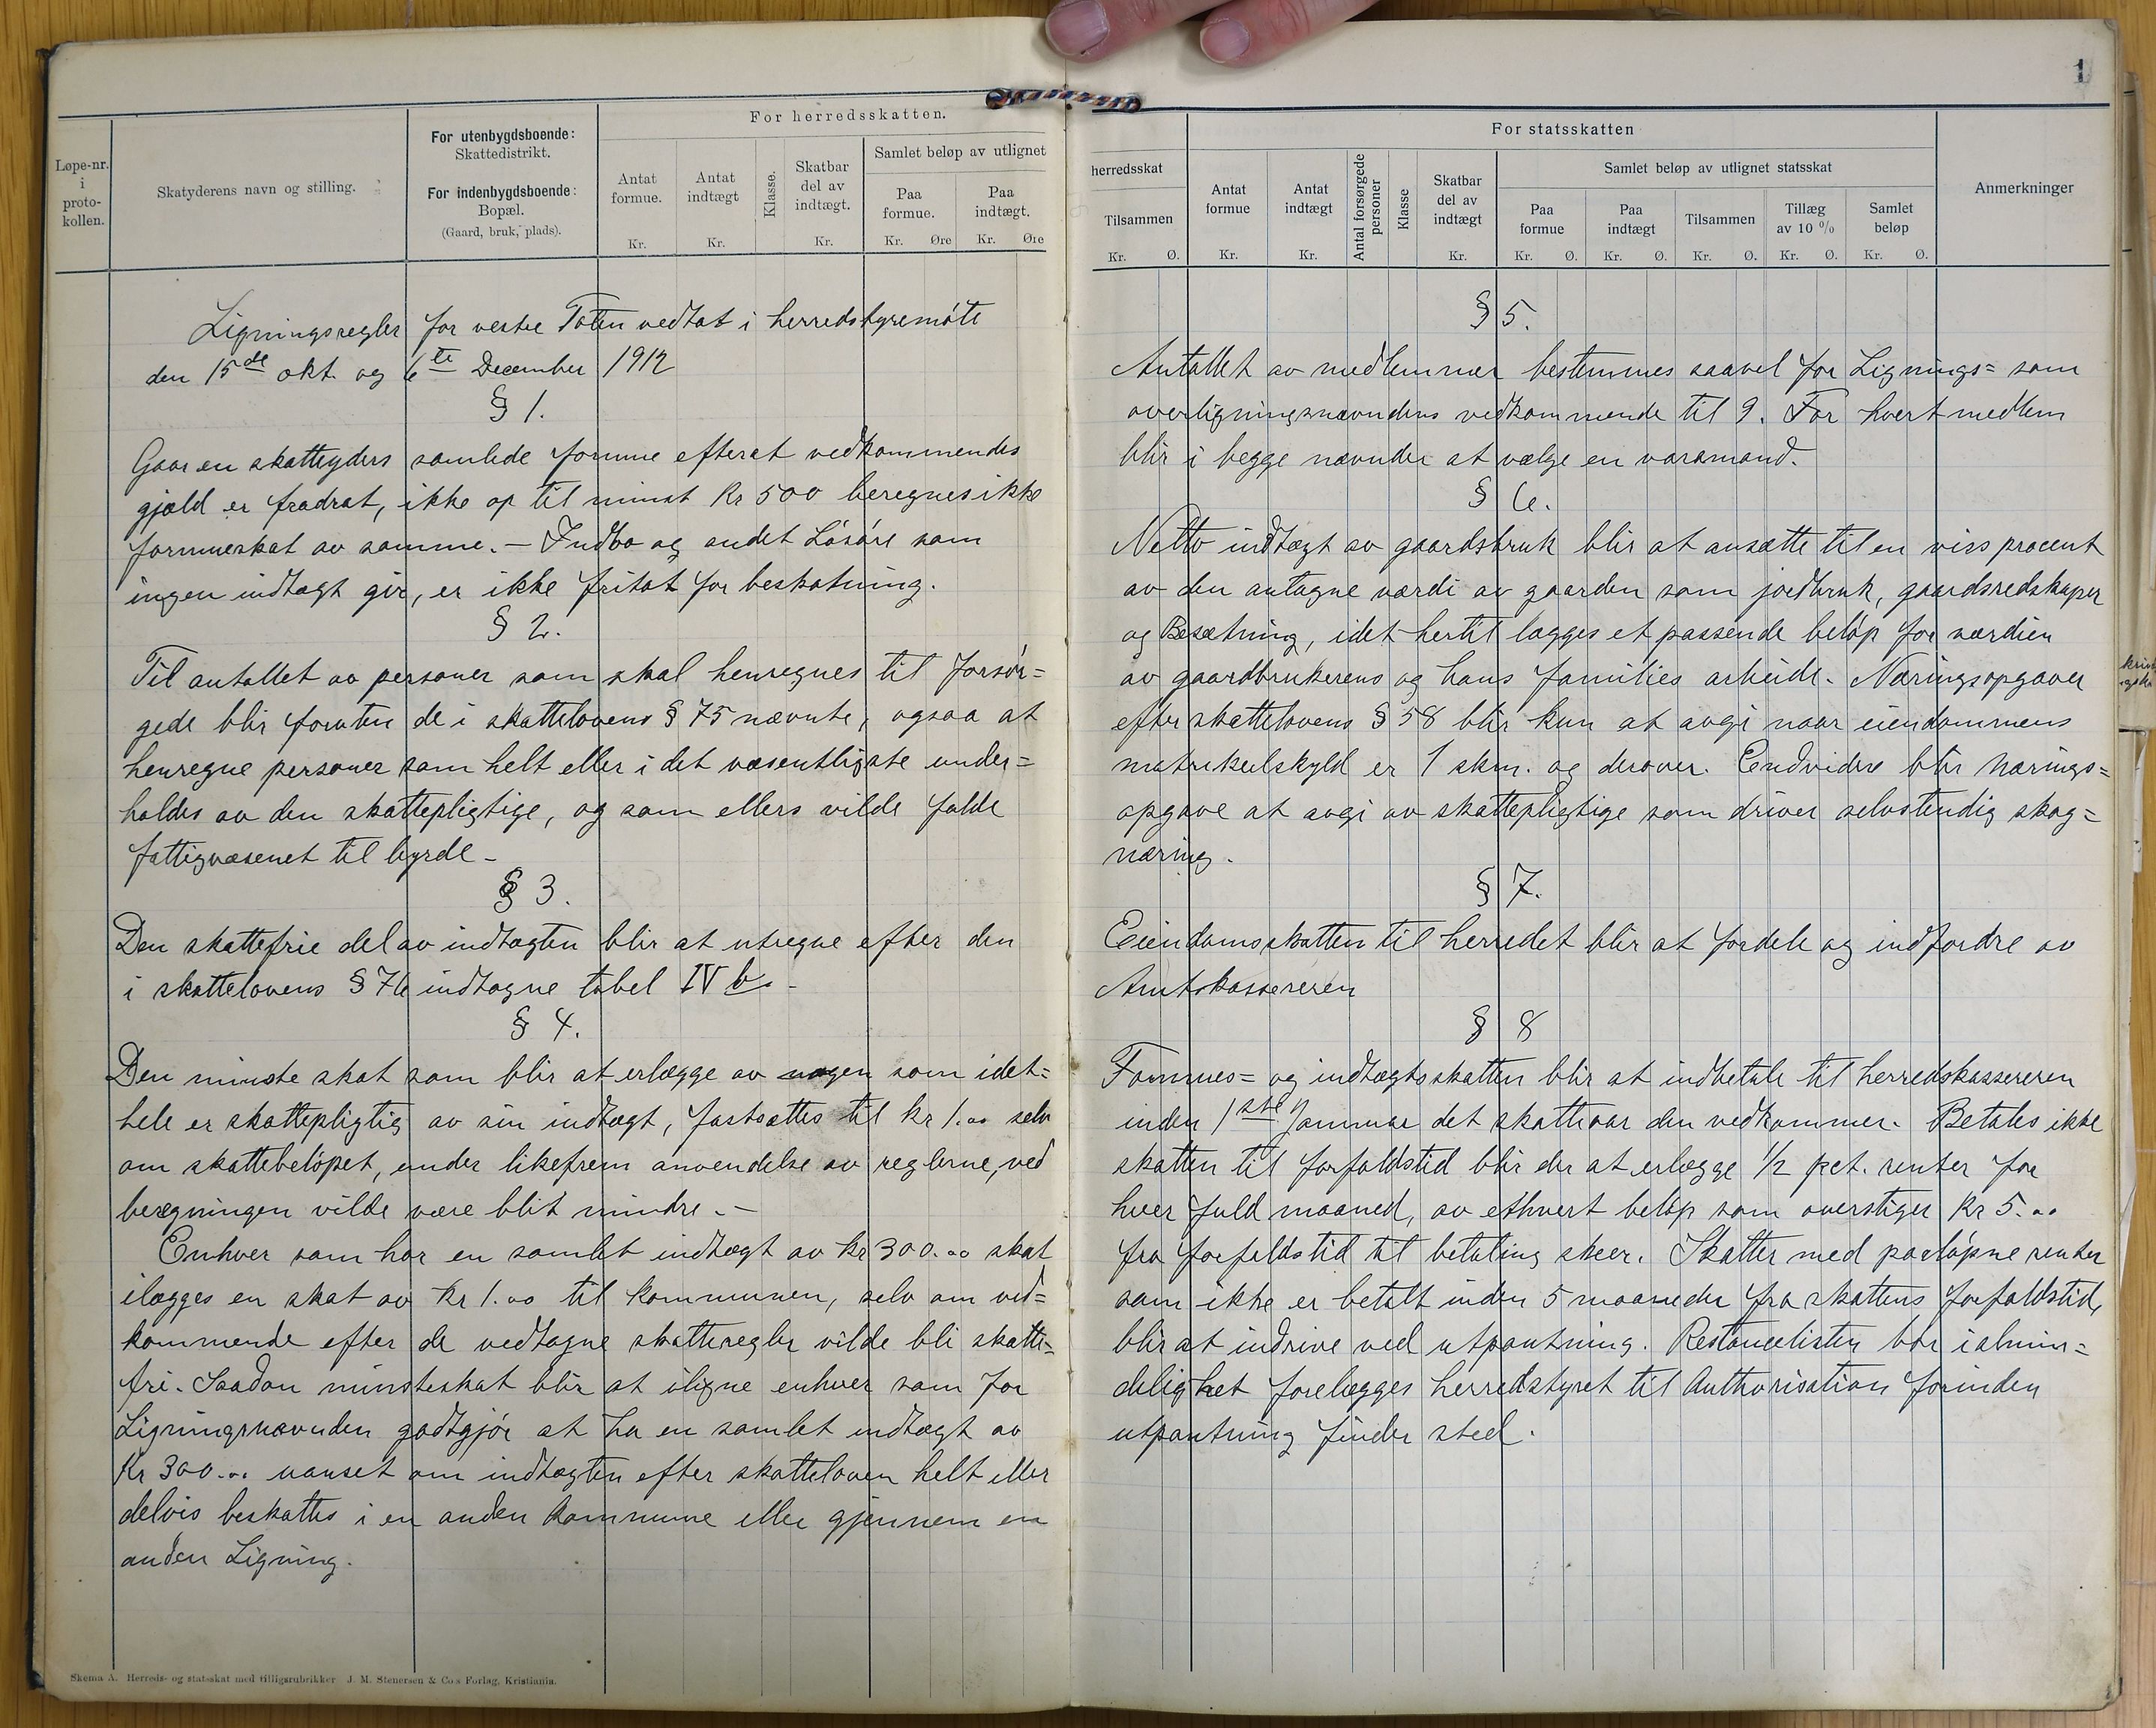 1
For herredsskatten.
Løpe-nr.
i
proto-
kollen.
Skatyderens navn og stilling.
For utenbygdsboende:
Skattedistrikt.
For indenbygdsboende:
Bopæl.
(Gaard, bruk, plads).
Antat
formue.
Kr.
Antat
indtægt
Kr.
Klasse.
Skatbar
del av
indtægt.
Kr.
Samlet beløp av utlignet
Paa
formue.
Kr. Øre
Paa
indtægt.
Kr. Øre
Ligningsregler for vestre Toten vedtat i herredstyremöte
den 15de okt. og 6te December 1912
§ 1.
Gaar en skatteyders samlede formue efterat vedkommendes
gjæld er fradrat, ikke op til minst Kr 500 beregnes ikke
formueskat av samme. – Indbo og andet Lösöre som
ingen indtægt gir, er ikke fritat for beskatning.
§ 2.
Til antallet av personer som skal henregnes til forsör=
gede blir foruten de i skattelovens § 75 nævnte, ogsaa at
henregne personer som helt eller i det væsentligste under=
holdes av den skattepligtige, og som ellers vilde falde
fattigvæsenet til byrde –
§ 3.
Den skattefrie del av indtægten blir at utregne efter den
i skattelovens § 76 indtagne tabel IV b. –
§ 4.
Den minste skat som blir at erlægge av nogen som idet=
hele er skattepligtig av sin indtægt, fastsættes til kr 1.00 selv
om skattebelöpet, under likefrem anvendelse av reglerne, ved
beregningen vilde være blit mindre. –
Enhver som har en samlet indtægt av Kr 300.00 skal
ilægges en skat av Kr 1.00 til kommunen, selv om ved=
kommende efter de vedtagne skatteregler vilde bli skatte=
fri. Saadan minsteskat blir at iligne enhver som for
Ligningsnævnden godtgjör at ha en samlet indtægt av
Kr 300.00 uanset om indtægten efter skatteloven helt eller
delvis beskattes i en anden kommune eller gjennem en
anden Ligning.
Skema A. Herreds- og statsskat med tilligsrubrikker J. M. Stenersen & Co.s Forlag, Kristiania.
herredsskat
Tilsammen
Kr. Ø.
For statsskatten
Antat
formue
Kr.
Antat
indtægt
Kr.
Antal forsørgede
personer
Klasse
Skatbar
del av
indtægt
Kr.
Samlet beløp av utlignet statsskat
Paa
formue
Kr. Ø.
Paa
indtægt
Kr. Ø.
Tilsammen
Kr. Ø.
Tillæg
av 10 %
Kr. Ø.
Samlet
beløp
Kr. Ø.
Anmerkninger
§ 5.
Antallet av medlemmer bestemmes saavel for Lignings= som
overligningsnævndens vedkommende til 9. For hvert medlem
blir i begge nævnder at vælge en varamand.
§ 6.
Netto indtægt av gaardsbruk blir at ansætte til en viss procent
av den antagne værdi av gaarden som jordbruk, gaardsredskaper
og Besætning, idet hertil lægges et passende belöp for værdien
av gaardbrukerens og hans families arbeide. Næringsopgaver
efter skattelovens § 58 blir kun at avgi naar eiendommens
matrikulskyld er 1 skm. og derover. Endvidere blir nærings=
opgave at avgi av skattepligtige som driver selvstendig skog=
næring.
§ 7.
Eiendomsskatten til herredet blir at fordele og indfordre av
Amtskassereren
§ 8
Formues= og indtægtsskatten blir at indbetale til herredskassereren
inden 1ste Januar det skatteaar den vedkommer. Betales ikke
skatten til forfaldstid blir der at erlægge 1/2 pct. renter for
hver fuld maaned, av ethvert belöp som overstiger Kr 5.00
fra forfaldstid til betaling skeer. Skatter med paaløpne renter
som ikke er betalt inden 5 maaneder fra skattens forfaldstid,
blir at indrive ved utpantning. Restancelisten bör i almin=
delighet forelægges herredstyret til Authorisation forinden
utpantning finder sted.